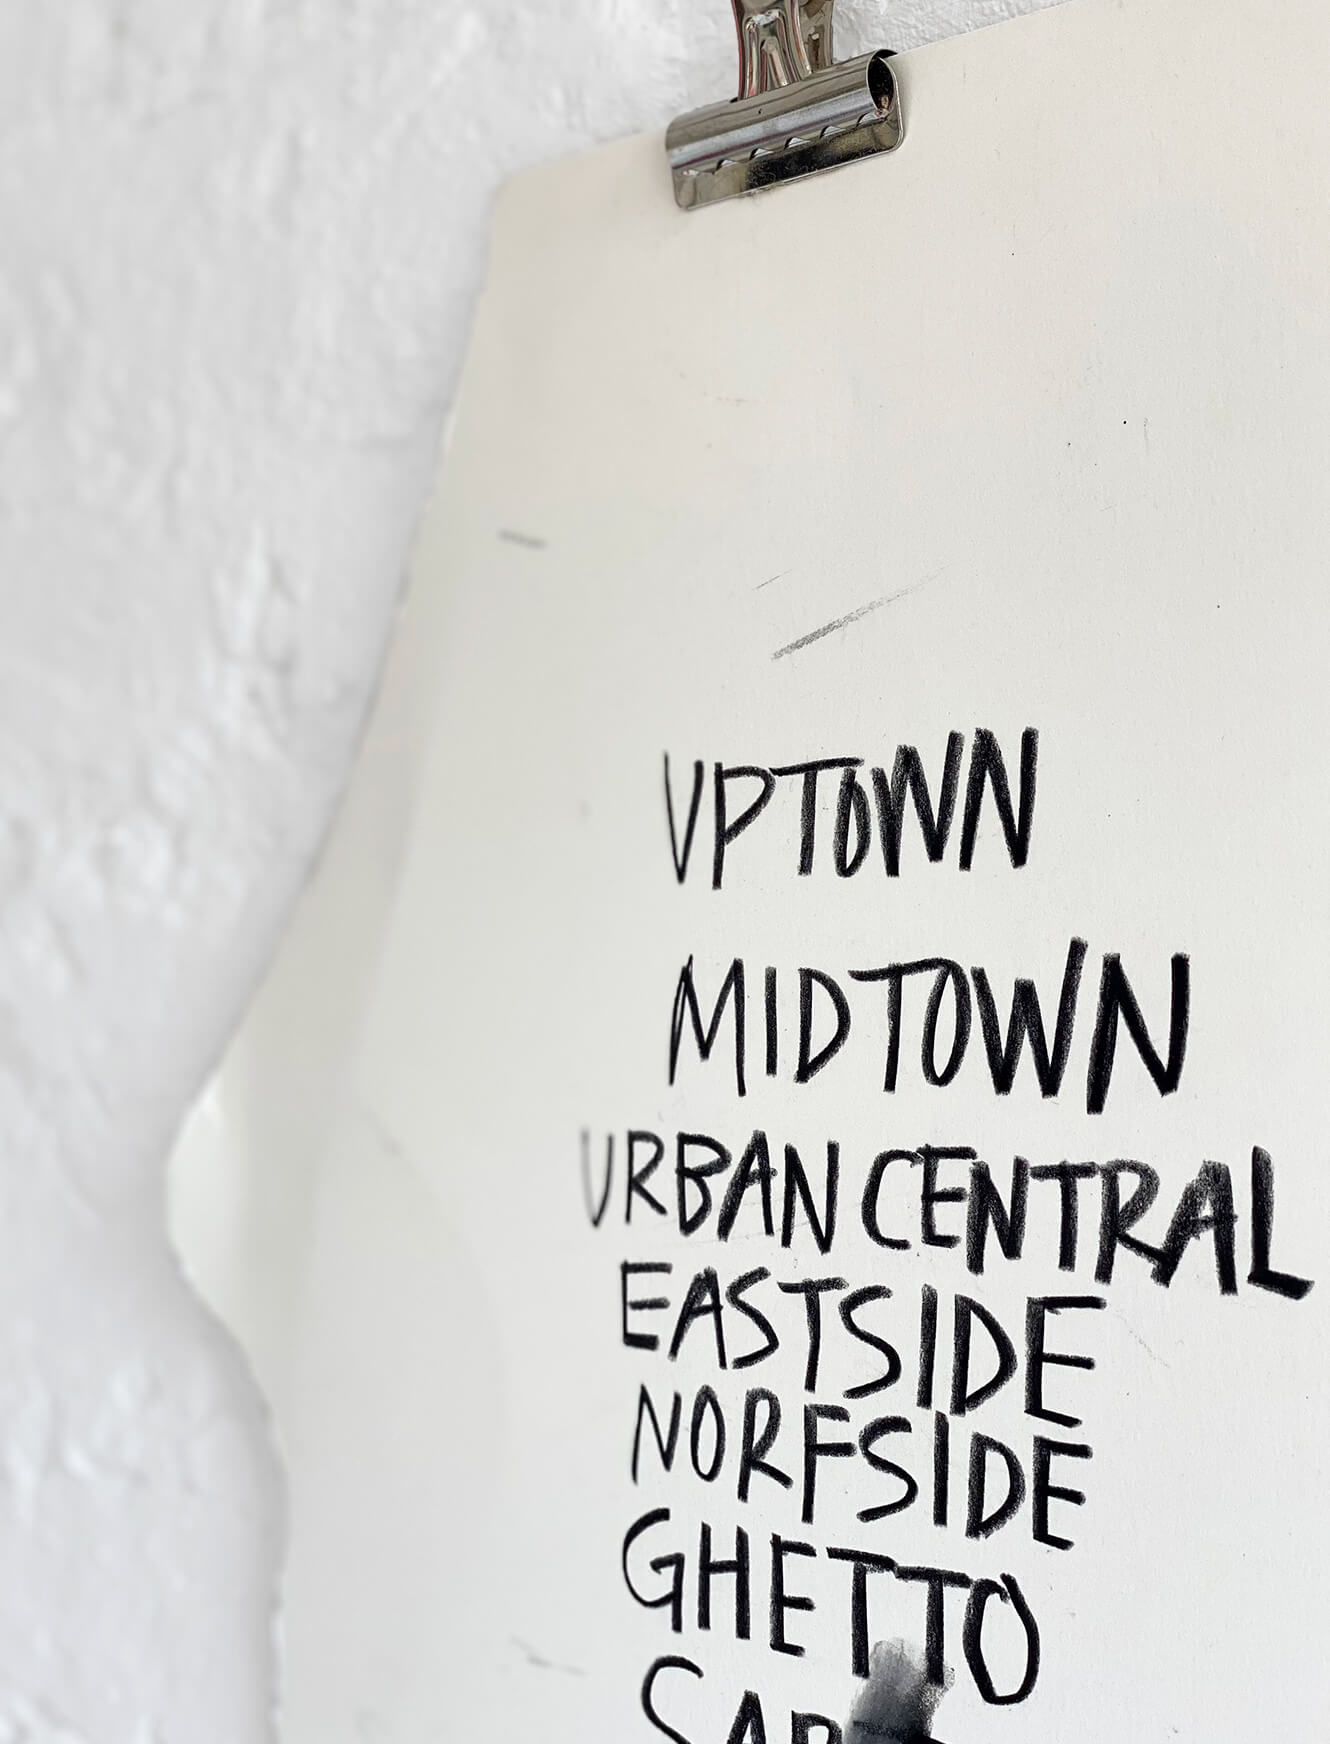 UPTOWN
MIDTOWN
URBAN CENTRAL
EASTSIDE
NORFSIDE
GHETTO